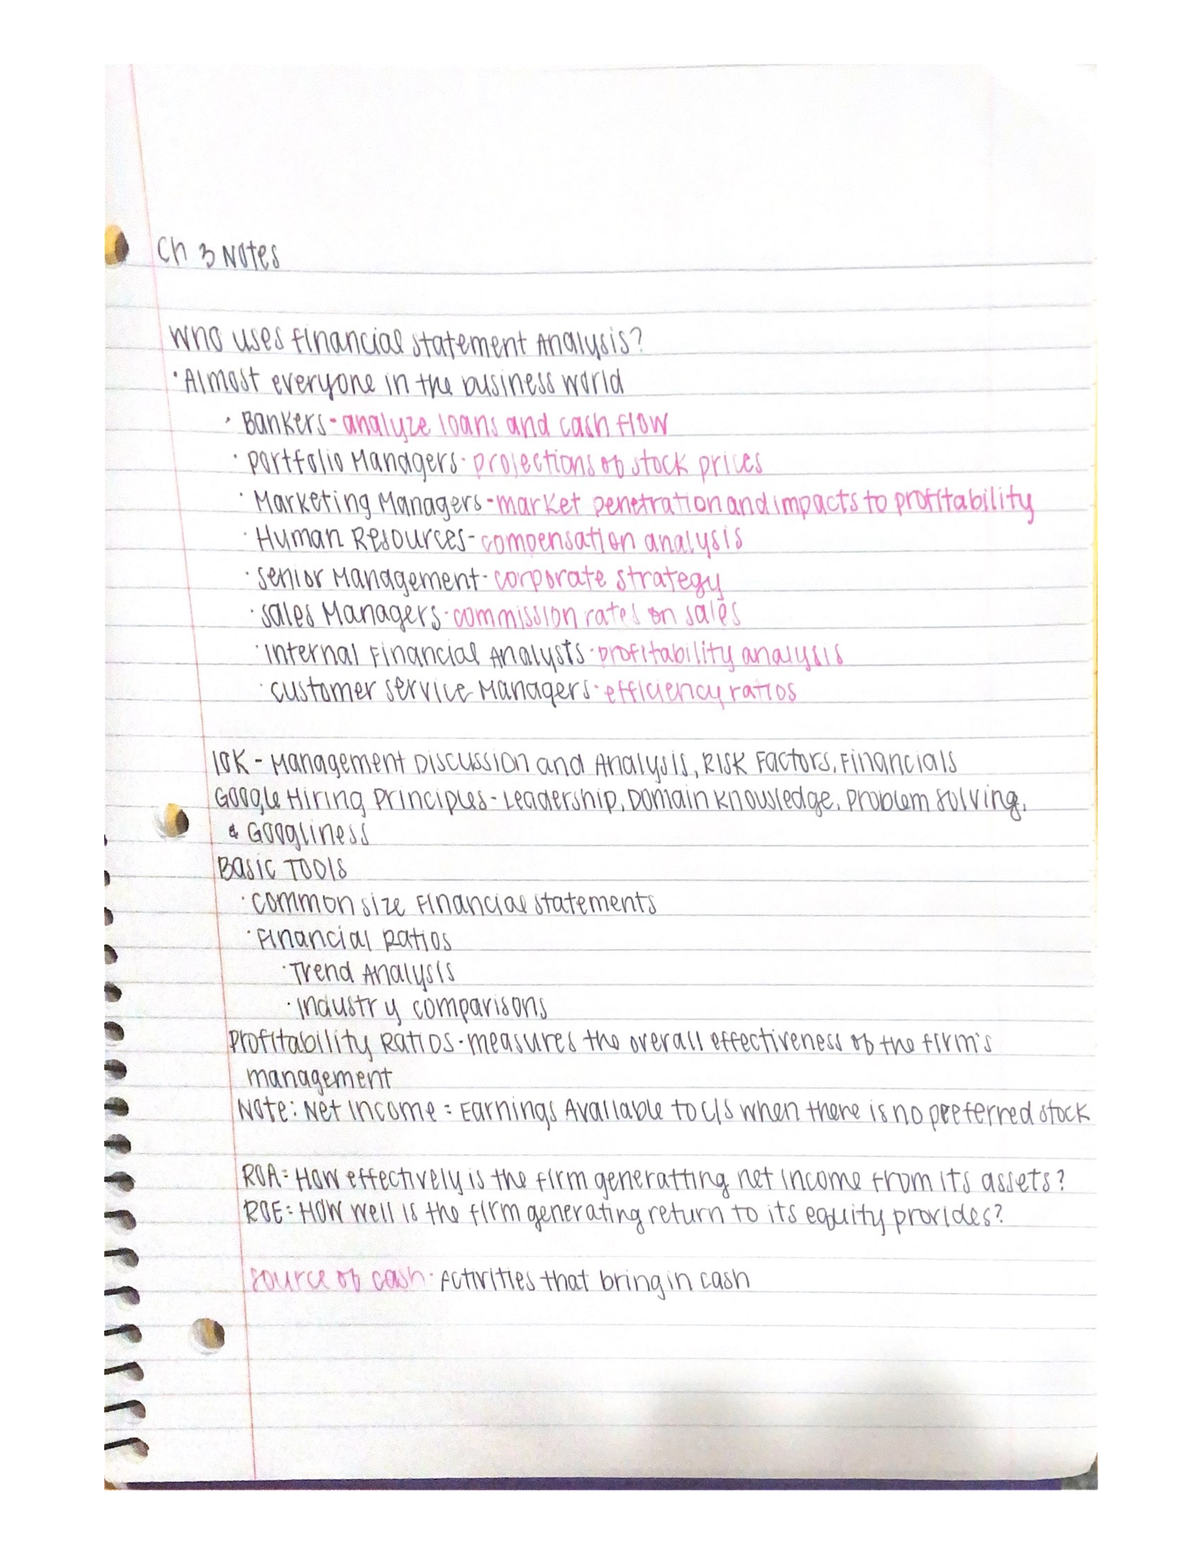 Ch 3 Notes
Who uses financial statement Analysis?
· Almost everyone in the business world
· Bankers - analyze loans and cash flow
· Portfolio Managers - projections of stock prices
· Marketing Managers - market penetration and impacts to profitability
· Human Resources - compensation analysis
· Senior Management - corporate strategy
· Sales Managers - commission rates on sales
· Internal Financial Analysts - profitability analysis
· Customer Service Managers - efficiency ratios
10K - Management Discussion and Analysis, Risk Factors, Financials
Google Hiring Principles - Leadership, Domain Knowledge, Problem Solving,
& Googliness
Basic Tools
· Common size Financial Statements
· Financial Ratios
· Trend Analysis
· Industry comparisons
Profitability Ratios - measures the overall effectiveness of the firm's
management
Note: Net Income = Earnings Available to C/S when there is no preferred stock
ROA = How effectively is the firm generatting net income from its assets?
ROE = How well is the firm generating return to its equity provides?
Source of cash - Activities that bring in cash